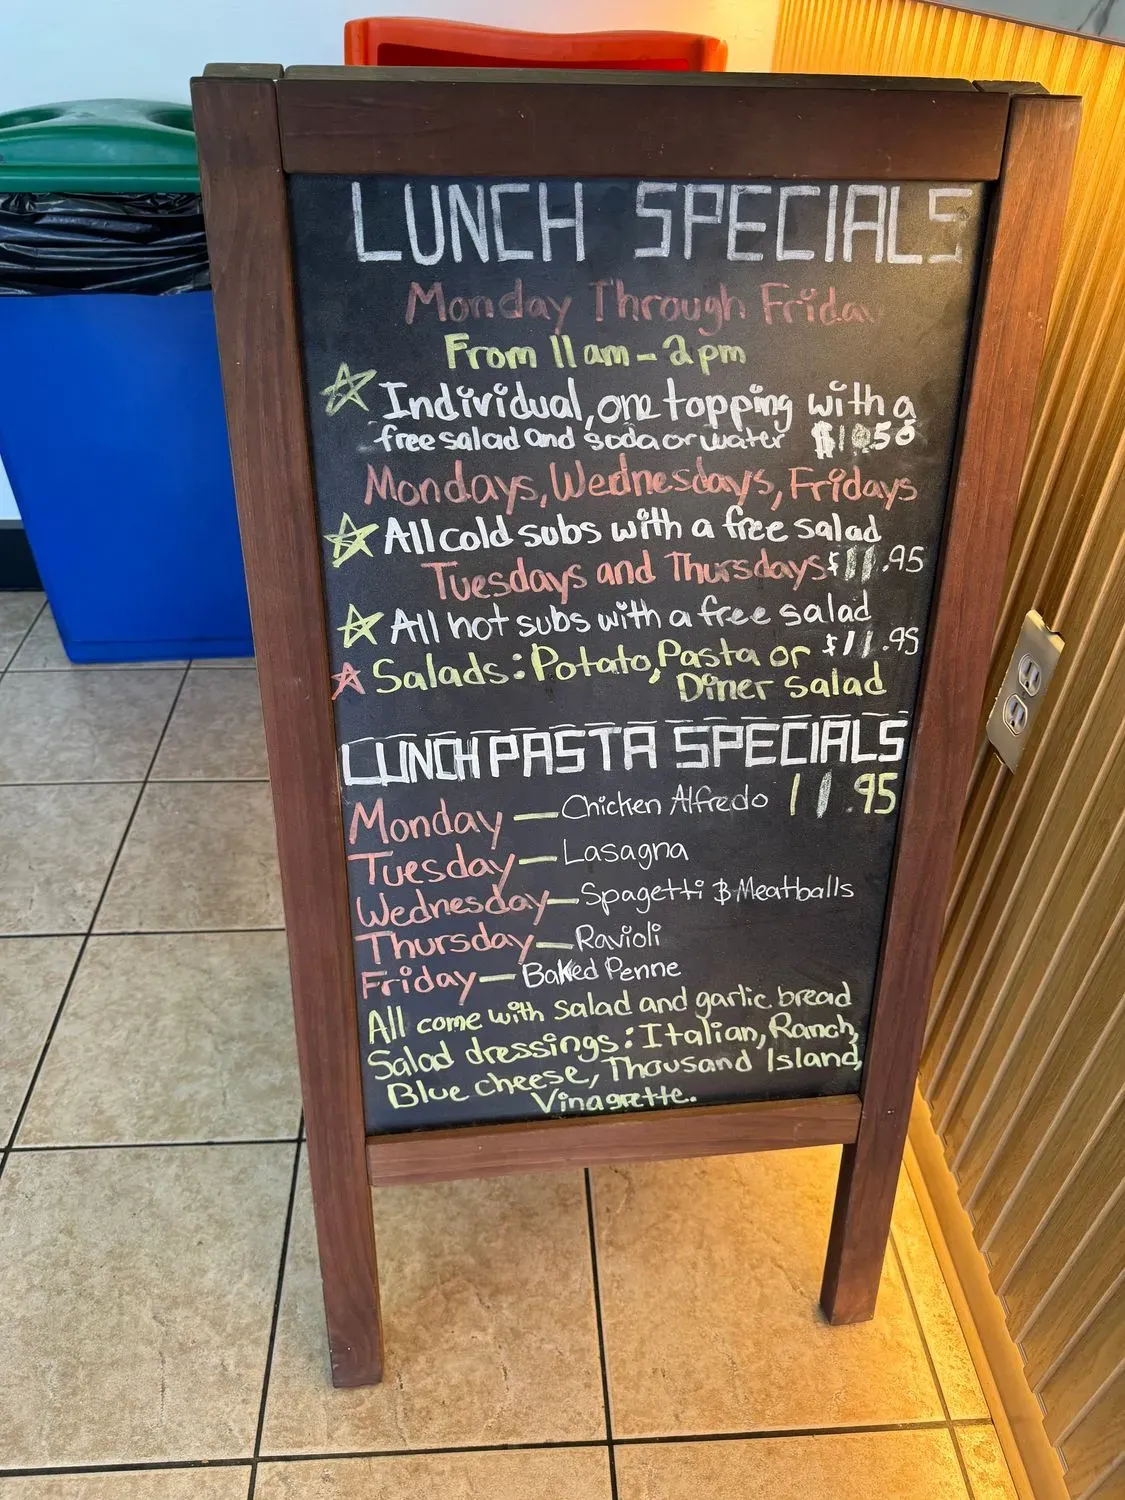 LUNCH SPECIALS
Monday Through Friday
From 11am - 2pm
Individual, one topping with a
free salad and soda or water $10.50
Mondays, Wednesdays, Fridays
All cold subs with a free salad
Tuesdays and Thursdays $11.95
All hot subs with a free salad
$11.95
Salads: Potato, Pasta or
Diner salad
LUNCH PASTA SPECIALS
Monday — Chicken Alfredo 11.95
Tuesday — Lasagna
Wednesday — Spagetti & Meatballs
Thursday — Ravioli
Friday — Baked Penne
All come with salad and garlic bread
Salad dressings: Italian, Ranch,
Blue cheese, Thousand Island,
Vinagrette.